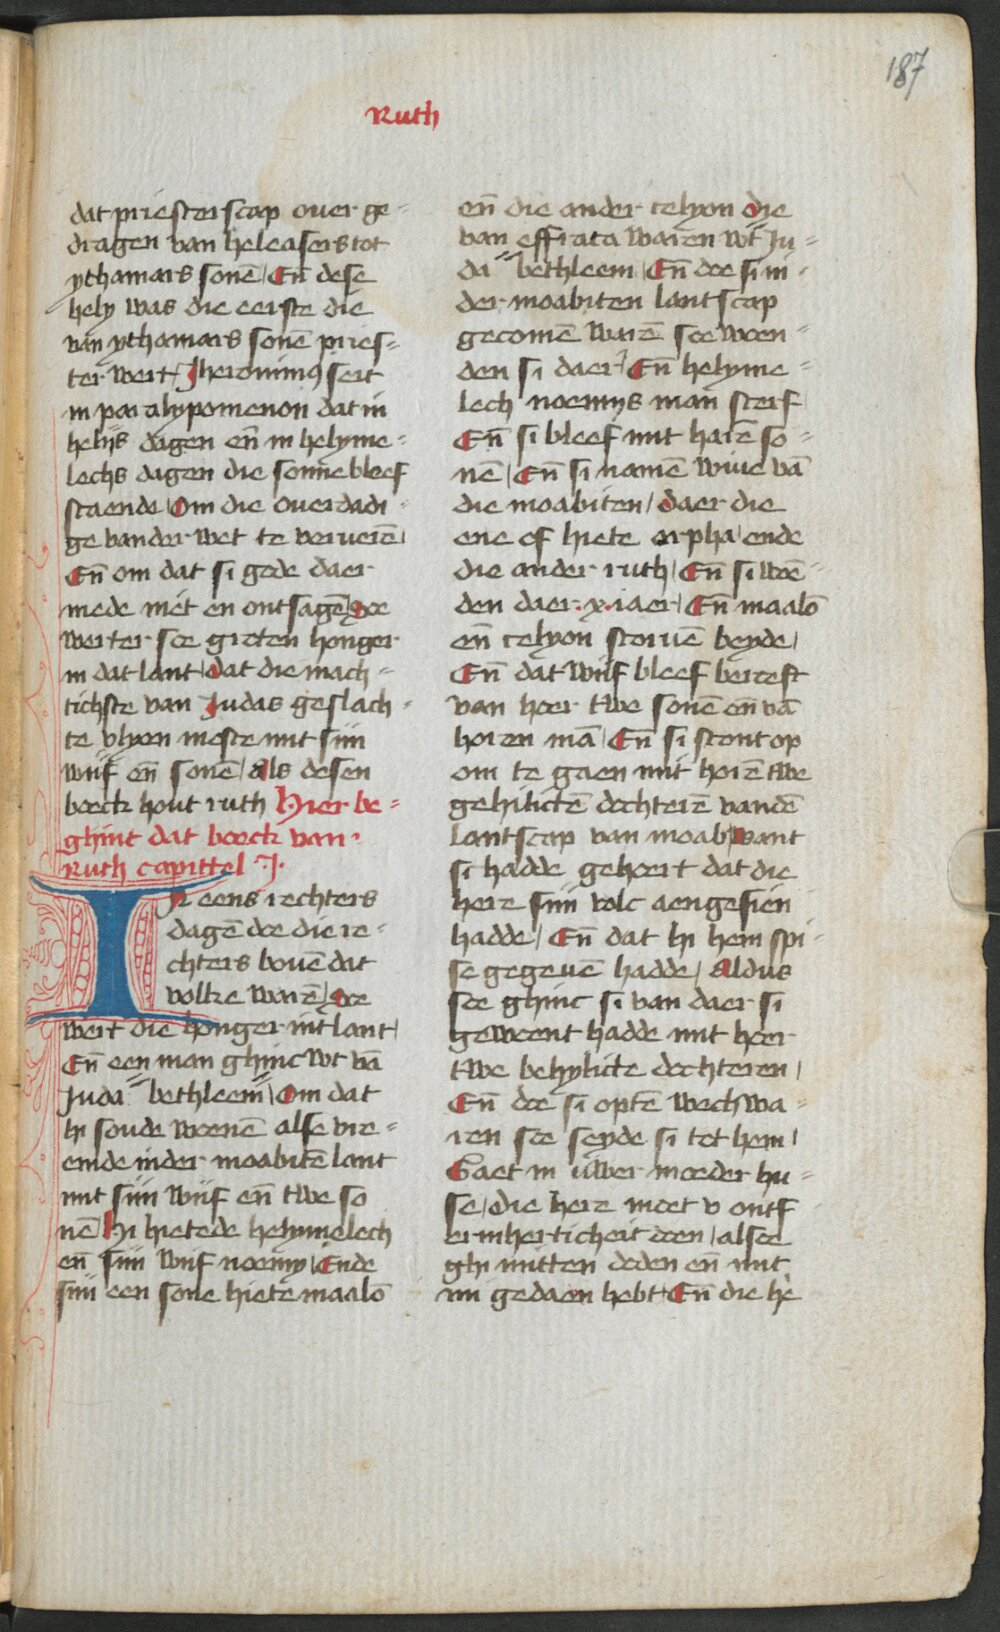 187
Ruth
dat priesterscap ouer ge=
dragen van heleasers tot
ythamars sonē / Eñ dese
hely was die eerste die
van ythamars sonē pries=
ter wert / Jheronimꝰ seit
in paralypomenon dat in
helijs dagen eñ in helyme=
lechs dagen die sonne bleef
staende / Om die ouerdadi=
ge vander wet te verueiē /
Eñ om dat si gode daer
mede niet en ontsagē / Doe
werter soe groten honger
in dat lant / dat die mach=
tichste van Judas geslach=
te vlyen moste mit sijn
wijf eñ sonē / Als desen
boeck hout ruth Hier be=
ghint dat boeck van
Ruth capittel .J.
In eens rechters
dagē doe die re=
chters bouē dat
volke warē / Doe
wert die honger int lant /
Eñ een man ghinc wt vā
Juda= bethleem= / Om dat
hi soude woenē alse vre=
emde inder moabitē lant
mit sijn wijf eñ twe so
nē / Hi hietede helymelech
eñ sijn wijf noemy / Ende
sijn een sone hiete maalō
eñ die ander celyon die
van effrata waren wt Ju=
da= bethleem / Eñ doe si in=
der moabiten lantscap
gecomē warē soe woen=
den si daer / Eñ helyme=
lech noemys man sterf
Eñ si bleef mit harē so=
nē / Eñ si namē wiue vā
die moabiten / daer die
ene of hiete orpha / ende
die ander ruth / Eñ si woē=
den daer .x. iaer / Eñ maalō
eñ celyon storuē beyde /
Eñ dat wijf bleef bereeft
van hoer twe sonē eñ vā
horen mā / Eñ si stont op
om te gaen mit horē twe
gehilictē dochterē vandē
lantscap van moab / want
si hadde gehoert dat die
here sijn volc aengesien
hadde / Eñ dat hi hem spi=
se gegeuē hadde / Aldus
soe ghinc si van daer si
gewoent hadde mit hoer
twe behylicte dochteren /
Eñ doe si optē wech wa=
ren soe seyde si tot hem /
Gaet in uwer moeder hu=
se / die here moet v ontf
ermherticheit doen / alsoe
ghi mitten doden eñ mit
mi gedaen hebt / Eñ die he